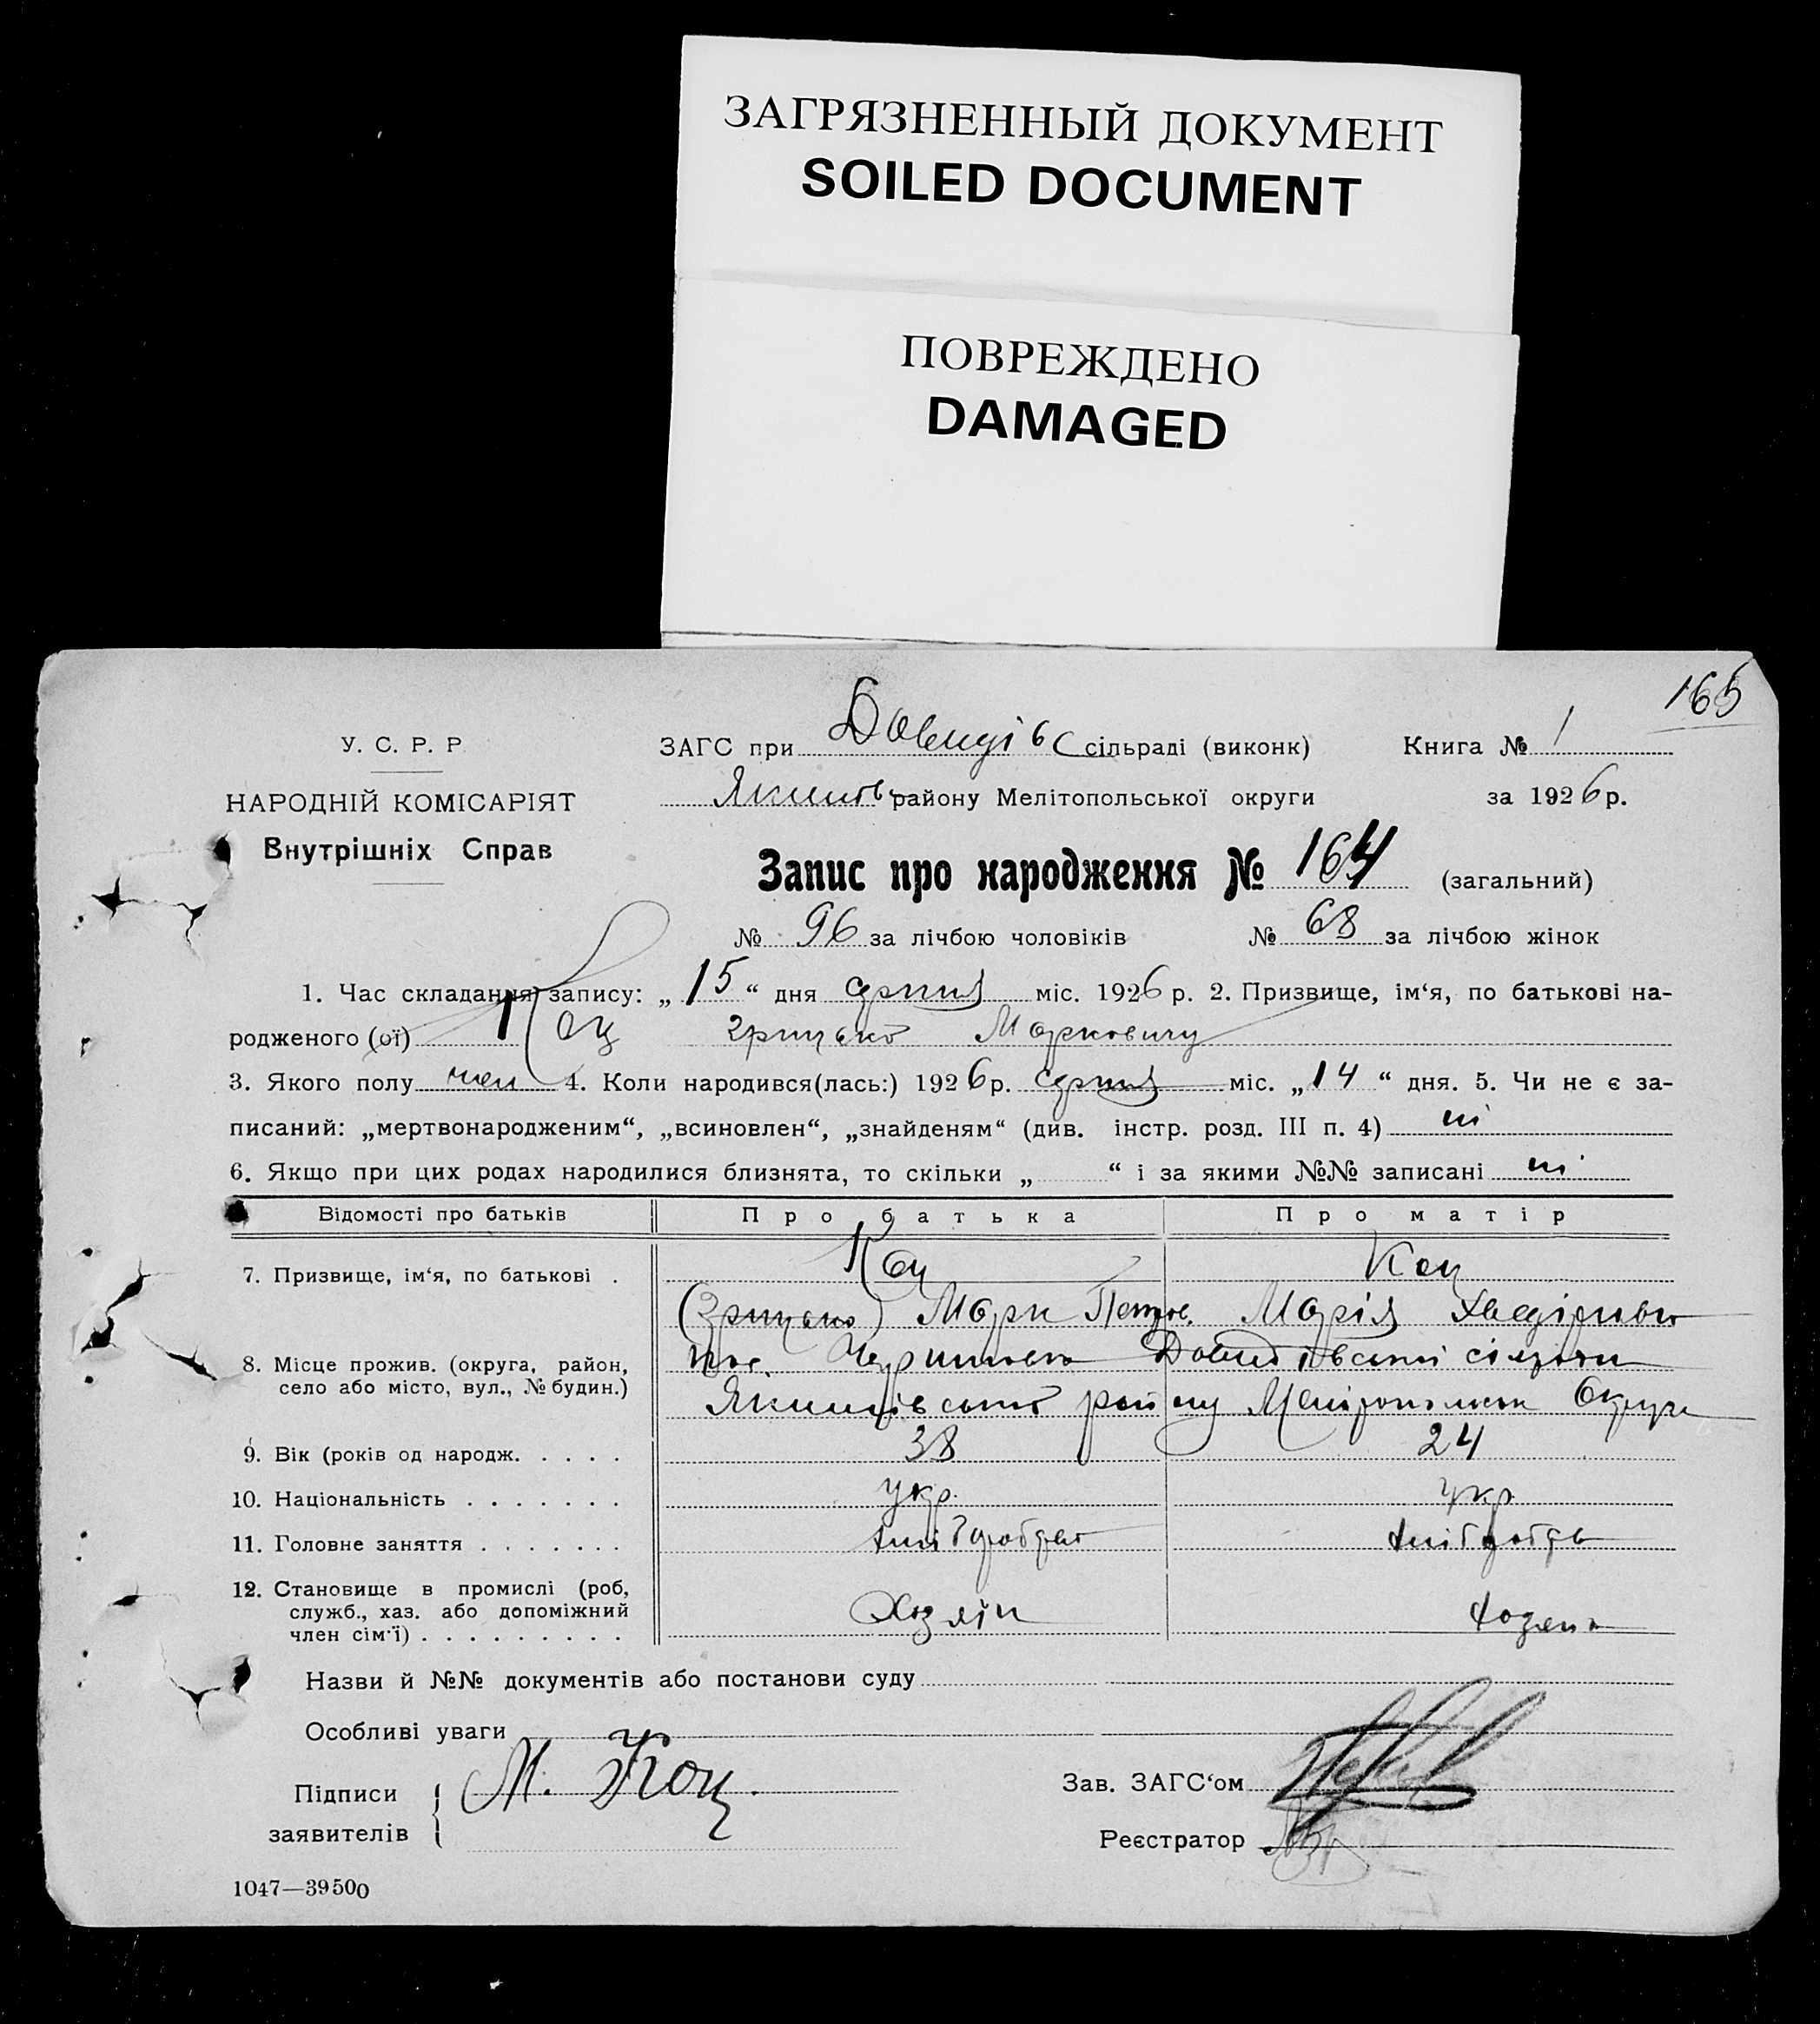 ЗАГРЯЗНЕННЫЙ ДОКУМЕНТ
SOILED DOCUMENT
ПОВРЕЖДЕНО
DAMAGED
165
У. С. Р. Р
НАРОДНІЙ КОМІСАРІЯТ
Внутрішніх Справ
ЗАГС при Довидівс сільраді (виконк) Книга № 1
Якимів району Мелітопольської округи за 1926 р.
Запис про народження № 164 (загальний)
№ 96 за лічбою чоловіків № 68 за лічбою жінок
1. Час складання запису: „15“ дня серпня міс. 1926 р. 2. Призвище, ім‘я, по батькові на-
родженого (ої) Коц Грицько Маркович
3. Якого полу чол 4. Коли народився(лась:) 1926 р. серпня міс. „14“ дня. 5. Чи не є за-
писаний: „мертвонародженим“, „всиновлен“, „знайденям“ (див. інстр. розд. III п. 4) ні
6. Якщо при цих родах народилися близнята, то скільки „ “ і за якими №№ записані ні
Відомості про батьків Про батька Про матір
7. Призвище, ім‘я, по батькові . Коц Коц
(Грицько) Марк Петров. Марія Хведіровн
8. Місце прожив. (округа, район,
село або місто, вул., № будин.)
Довидівської сільради
Якимівського району Мелітопольск Округи
9. Вік (років од народж. . . . . 38 24
10. Національність . . . . . . . укр. укр
11. Головне заняття . . . . . . . хліборобтво хліборобтв
12. Становище в промислі (роб,
служб., хаз. або допоміжний
член сім‘ї) . . . . . . . . . Хозяїн
Назви й №№ документів або постанови суду
Особливі уваги
Підписи
заявителів
М. Коц.
Зав. ЗАГС‘ом
Реєстратор
1047—39500